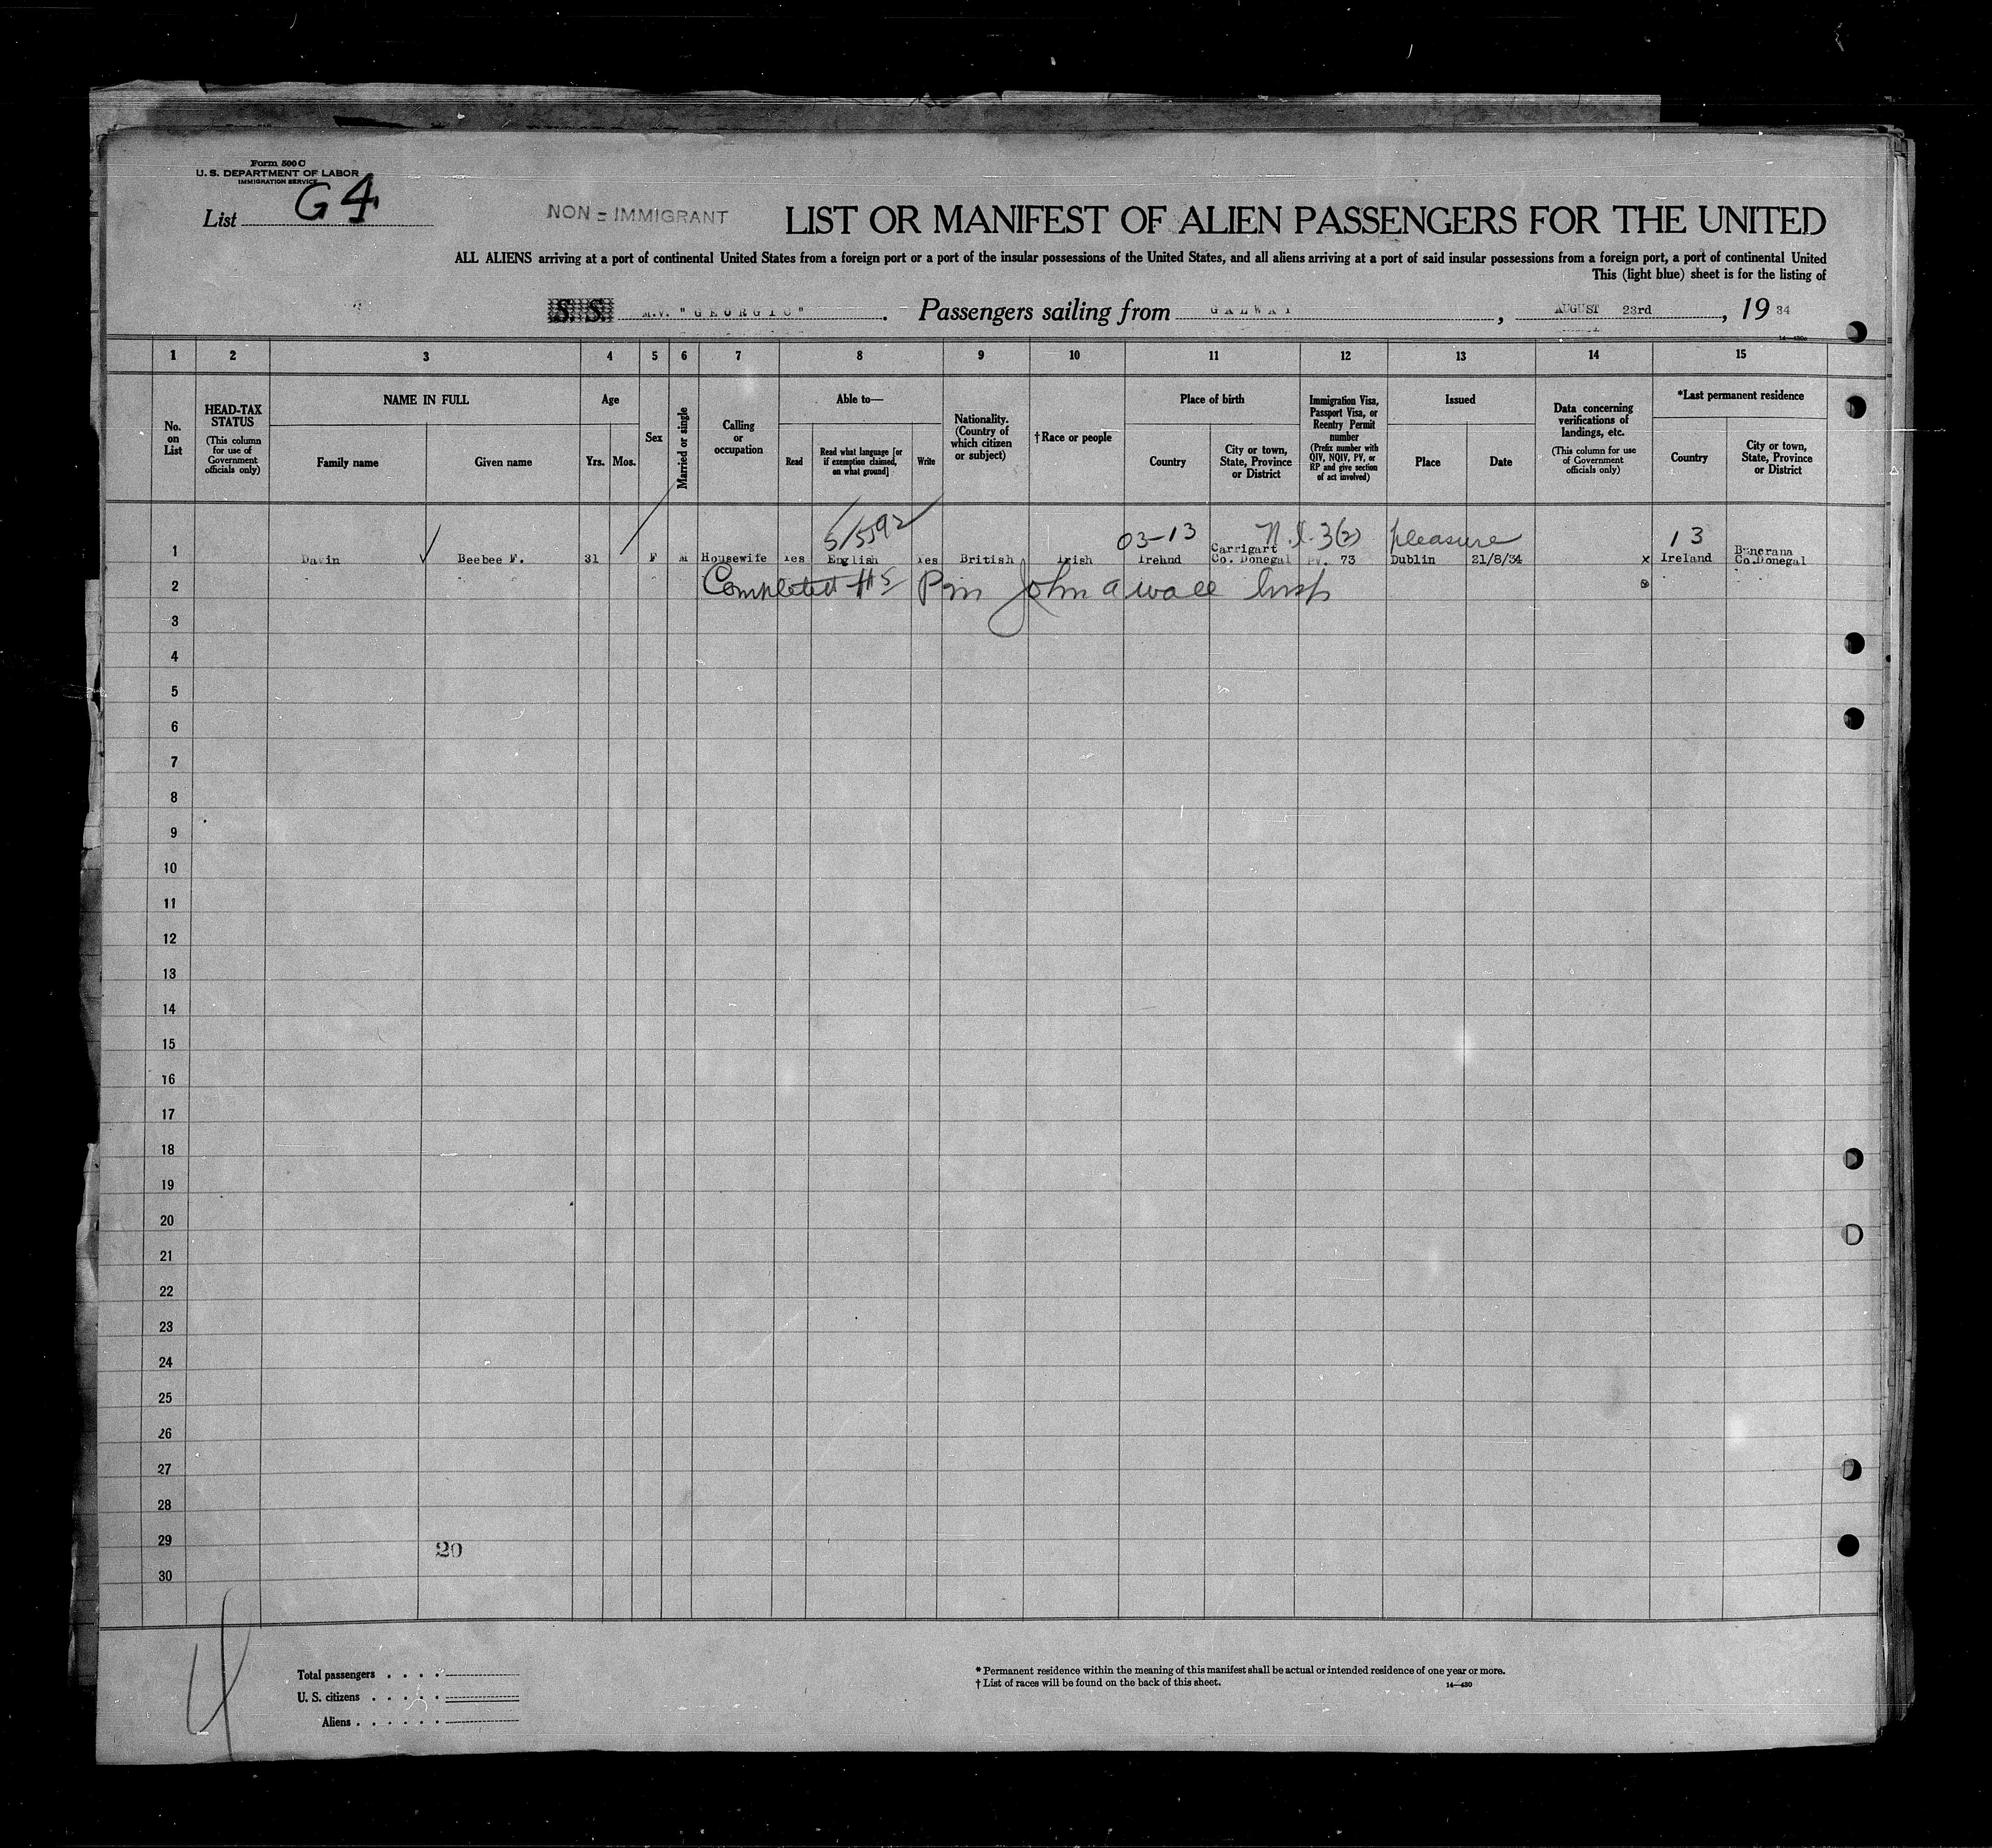 Form 500 C
U. S. DEPARTMENT OF LABOR
IMMIGRATION SERVICE
List G 4
NON = IMMIGRANT
LIST OR MANIFEST OF ALIEN PASSENGERS FOR THE UNITED
ALL ALIENS arriving at a port of continental United States from a foreign port or a port of the insular possessions of the United States, and all aliens arriving at a port of said insular possessions from a foreign port, a port of continental United
This (light blue) sheet is for the listing of
S. S. M.V. "GEORGIC". Passengers sailing from GALWAY, AUGUST 23rd, 19 34
1 2 3 4 5 6 7 8 9 10 11 12 13 14 15
No. on List
HEAD-TAX STATUS
(This column for use of Government officials only)
NAME IN FULL
Family name
Given name
Age
Yrs. Mos.
Sex
Married or single
Calling or occupation
Able to—
Read
Read what language [or if exemption claimed, on what ground]
Write
Nationality. (Country of which citizen or subject)
† Race or people
Place of birth
Country
City or town, State, Province or District
Immigration Visa, Passport Visa, or Reentry Permit number
(Prefix number with QIV, NQIV, PV, or RP and give section of act involved)
Issued
Place
Date
Data concerning verifications of landings, etc.
(This column for use of Government officials only)
*Last permanent residence
Country
City or town, State, Province or District
5/5592 03-13 N.I. 3(2) pleasure 13
1 Davin Beebee F. 31 F M Housewife Yes English Yes British Irish Irelnd Carrigart Co. Donegal PV. 73 Dublin 21/8/34 x Ireland Buncrana Co.Donegal
2 Completed #5 John a wall Insp
3
4
5
6
7
8
9
10
11
12
13
14
15
16
17
18
19
20
21
22
23
24
25
26
27
28
29
20
30
4
Total passengers . . . .
U. S. citizens . . . . .
Aliens . . . . . .
* Permanent residence within the meaning of this manifest shall be actual or intended residence of one year or more.
† List of races will be found on the back of this sheet.
14—430